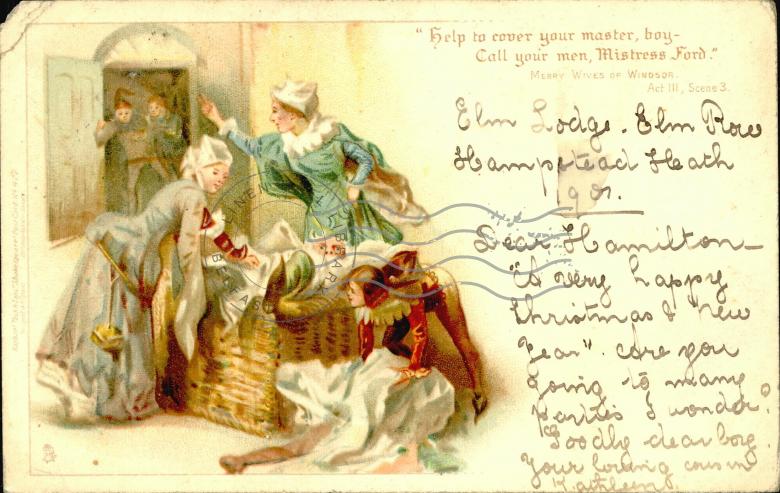 "Help to cover your master, boy-
Call your men, Mistress Ford."
MERRY WIVES OF WINDSOR.
Act III, Scene 3.
Elm Lodge. Elm Row
Hampstead Heath
1901.
Dear Hamilton—
"A very happy
Christmas & New
Year". are you
Going to many
Parties I wonder?
Goodby dear boy.
Your loving cousin
Kathleen.
LINEN HALL LIBRARY
BELFAST